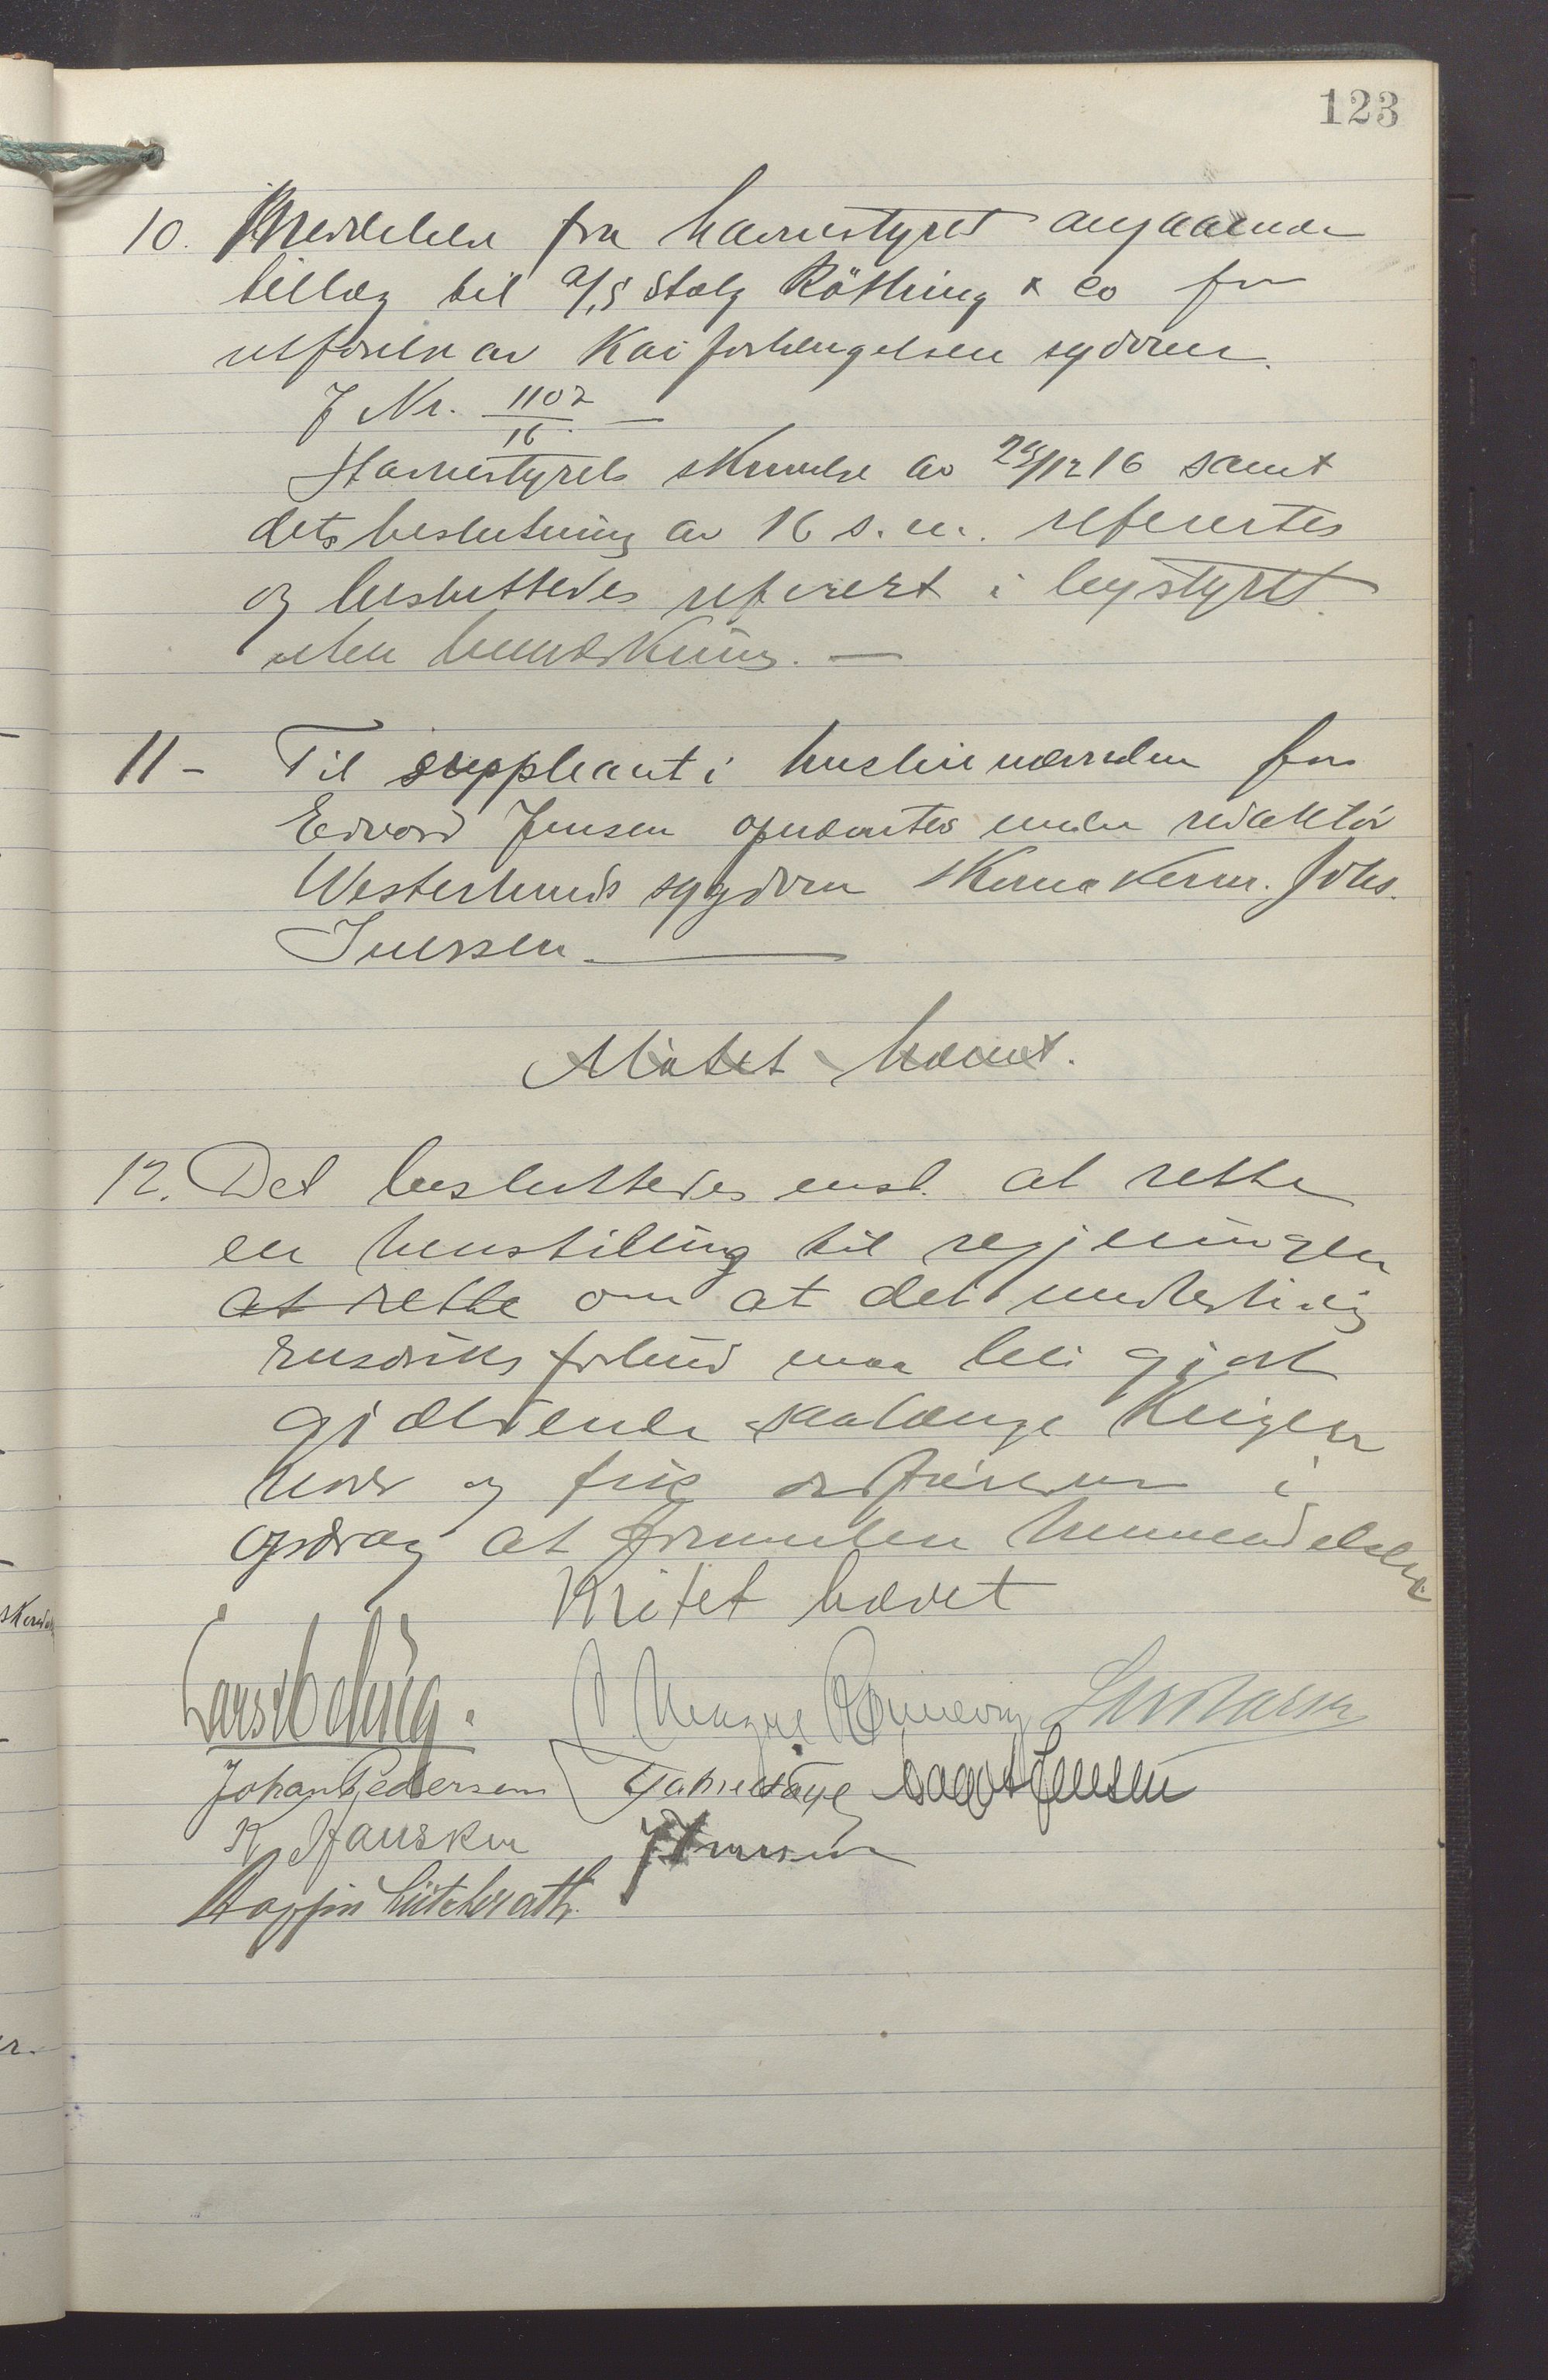 123
10. Meddelelse fra havnestyret angaaende
tillæg til A/S Stolz Röthing & Co for
utförelse av Kaiforlengelsen sydover.
J Nr. 1102/16. —
Havnestyrets skrivelse av 29/12 16 samt
dets beslutning av 16 s. m. refertes
og besluttedes referert i bystyret
uten bemerkning. —
11 - Til suppleant i husleienævnden for
Edvard Jensen opnævntes under redaktör
Westerlunds sygdom Skomakerm. Johs.
Iversen. —
Mötet hævet.
12. Det besluttedes enst. at rette
en henstilling til regjeringen
at rette om at det midlertidig
rusdriks forbud maa bli gjort
gjældende saalænge Krigen
varer og fik ordföreren i
opdrag at formulere henvendelsen.
Mötet hævet
Johan Pedersen Dagot Jensen
K. Hansken J Iversen